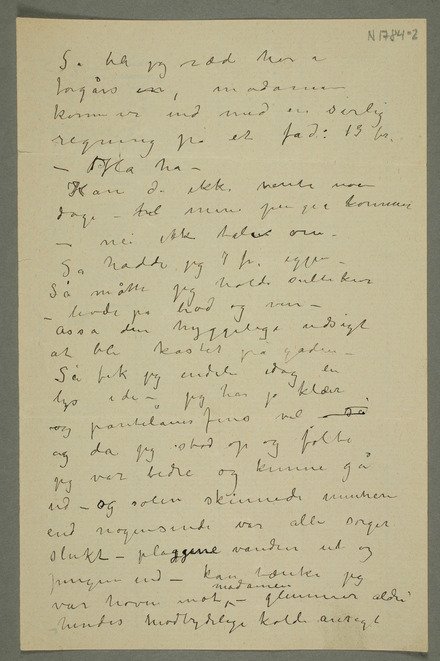 N 1784-2
Så ble jeg ræd her i
forgårs, madamen
kommer ind med en særlig
regning på et fad: 13 fr.
– Ha ha –
Kan de ikke vente noen
dage – til mine penger kommer
– nei ikke tale om.
Så hadde jeg 7 fr. igjen –
Så måtte jeg holde sultekur
– levde på brød og vin –
Assa den hyggelige udsigt
at bli kastet på gaden –
Så fik jeg endelig idag en
lys ide – jeg har jo klær
og pantelåner fins vel –
og da jeg stod op og følte
jeg var bedre og kunne gå
ud – og solen skinnede muntrere
end nogensinde var alle sorger
slukt – plaggene vandrer ud og
pengene ind – kan tænke jeg
var hoven mot madamen – glemmer aldri
hendes modbydelige kolde ansigt